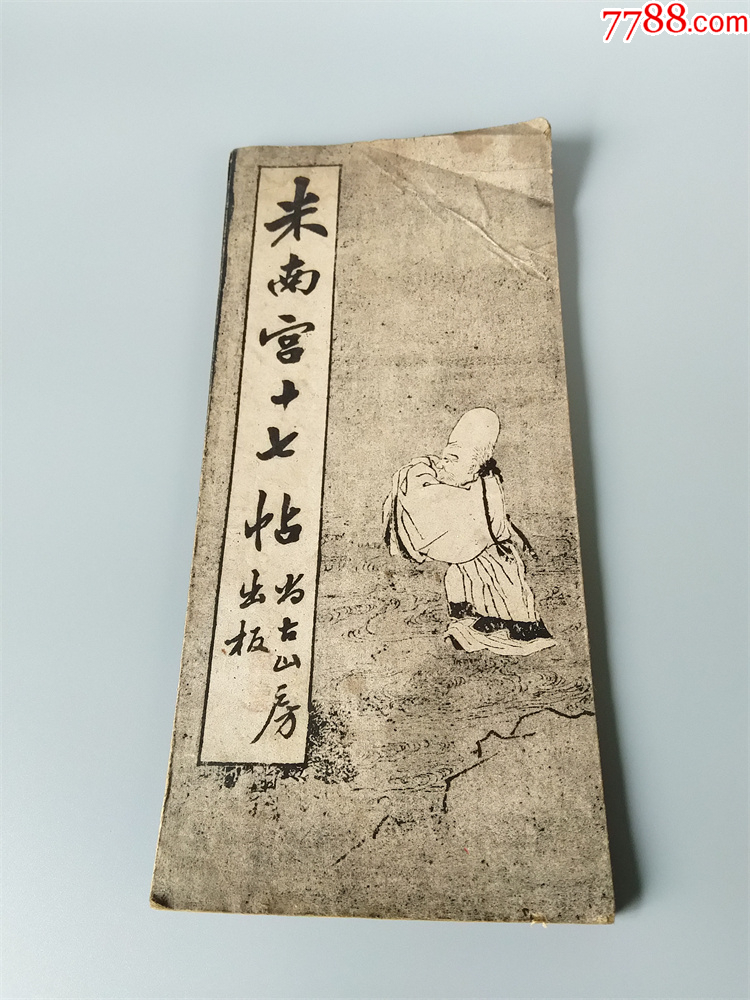 7788.com
米南宫十七帖
尚古山房
出板